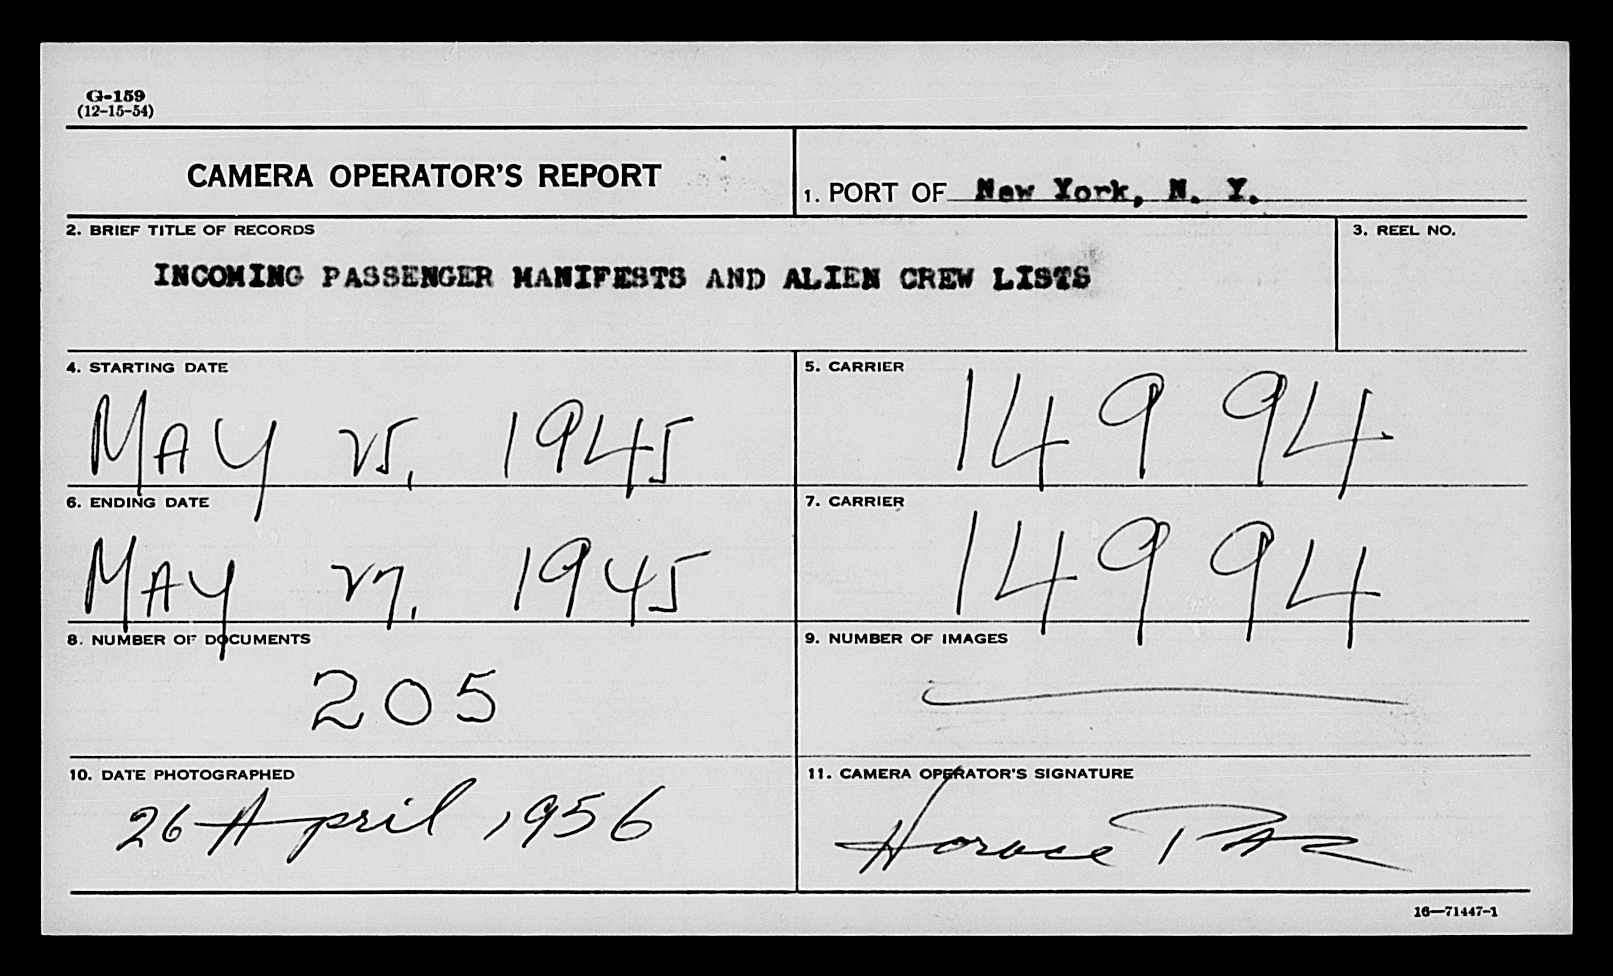 G-159
(12-15-54)
CAMERA OPERATOR'S REPORT
1. PORT OF New York, N. Y.
2. BRIEF TITLE OF RECORDS
3. REEL NO.
INCOMING PASSENGER MANIFESTS AND ALIEN CREW LISTS
4. STARTING DATE
5. CARRIER
MAY 25, 1945
14994
6. ENDING DATE
7. CARRIER
MAY 27, 1945
14994
8. NUMBER OF DOCUMENTS
9. NUMBER OF IMAGES
205
10. DATE PHOTOGRAPHED
11. CAMERA OPERATOR'S SIGNATURE
26 April, 1956
Horace
16—71447-1